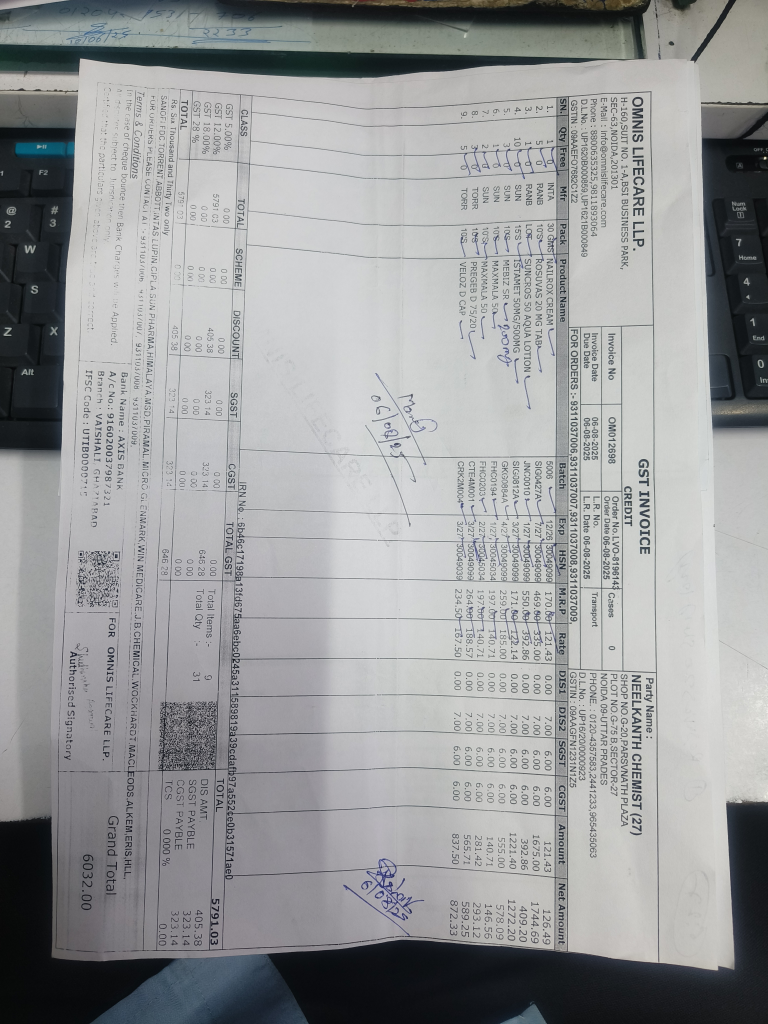 OMNIS LIFECARE LLP.
H-160,SUIT NO. 1-A,BSI BUSINESS PARK,
SEC-63,NOIDA,201301
E-Mail : info@omnislifecare.com
Phone : 8800635325,9811893064
D.L.No. : UP1620B000859,UP1621B000849
GSTIN : 09AAEFO7682C1Z2
GST INVOICE
CREDIT
Invoice No OM012698
Order No. LVO-8196143 Cases 0
Order Date 06-08-2025
Invoice Date 06-08-2025 L.R. No. Transport
Due Date 06-08-2025 L.R. Date 06-08-2025
FOR ORDERS :- 9311037006,9311037007,9311037008,9311037009,
Party Name :
NEELKANTH CHEMIST (27)
SHOP NO.G-20,PARSVNATH PLAZA
PLOT NO.G-75 B,SECTOR-27
NOIDA 09-UTTAR PRADES
PHONE : 0120-4357583,2441233,965435063
D.l.No. : UP16/20/0000923
GSTIN : 09AAGFN1231N1Z5
SN. Qty Free Mfr Pack Product Name Batch Exp HSN M.R.P Rate DIS1 DIS2 SGST CGST Amount Net Amount
1. 1 0 INTA 30 GMS NAILROX CREAM 5006 12/26 30049099 170.00 121.43 0.00 7.00 6.00 6.00 121.43 126.49
2. 5 0 RANB 10'S ROSUVAS 20 MG TAB SIG0427A 7/27 30049099 469.00 335.00 0.00 7.00 6.00 6.00 1675.00 1744.69
3. 1 0 RANB LOT SUNCROS 50 AQUA LOTION JNC0010 1/27 30049099 550.00 392.86 0.00 7.00 6.00 6.00 392.86 409.20
4. 10 0 SUN 15'S ISTAMET 50MG/500MG SIG0812A 3/27 30049099 171.00 122.14 0.00 7.00 6.00 6.00 1221.40 1272.20
5. 3 0 SUN 10'S MEBIZ SR 200mg 4/27 259.00 185.00 0.00 7.00 6.00 6.00 555.00 578.09
6. 1 0 SUN 10'S MAXMALA 50 FHC0194 1/27 30045034 197.00 140.71 0.00 7.00 6.00 6.00 140.71 146.56
7. 2 0 SUN 10'S MAXMALA 50 FHC0203 2/27 30045034 197.00 140.71 0.00 7.00 6.00 6.00 281.42 293.12
8. 3 0 TORR 10'S PREGEB D 75/20 CTE4M001 3/27 30049099 264.00 188.57 0.00 7.00 6.00 6.00 565.71 589.25
9. 5 0 TORR 10'S VELOZ D CAP CRK2M004 3/27 30049039 234.50 167.50 0.00 7.00 6.00 6.00 837.50 872.33
06/08/25
6/08/25
IRN No. : 6b46c17198a13fd675aa6ebc0245a311589819a39cdafb97a552ce0b31571ae0
CLASS TOTAL SCHEME DISCOUNT SGST CGST TOTAL GST
GST 5.00% 0.00 0.00 0.00 0.00 0.00 0.00
GST 12.00% 5791.03 0.00 405.38 323.14 323.14 646.28
GST 18.00% 0.00 0.00 0.00 0.00 0.00 0.00
GST 28 % 0.00 0.00 0.00 0.00 0.00 0.00
TOTAL 5791.03 0.00 405.38 323.14 323.14 646.28
Total Items :- 9
Total Qty :- 31
TOTAL 5791.03
DIS AMT 405.38
SGST PAYBLE 323.14
CGST PAYBLE 323.14
TCS 0.000 % 0.00
Rs. Six Thousand and Thirty Two only
FOR ORDERS PLEASE CONTACT AT :- 9311037006, 9311037007, 9311037008, 9311037009,
Terms & Conditions
Bank Name : AXIS BANK
A/c No.: 916020037987321
Branch : VAISHALI, GHAZIABAD
FOR OMNIS LIFECARE LLP.
Authorised Signatory
Grand Total
6032.00